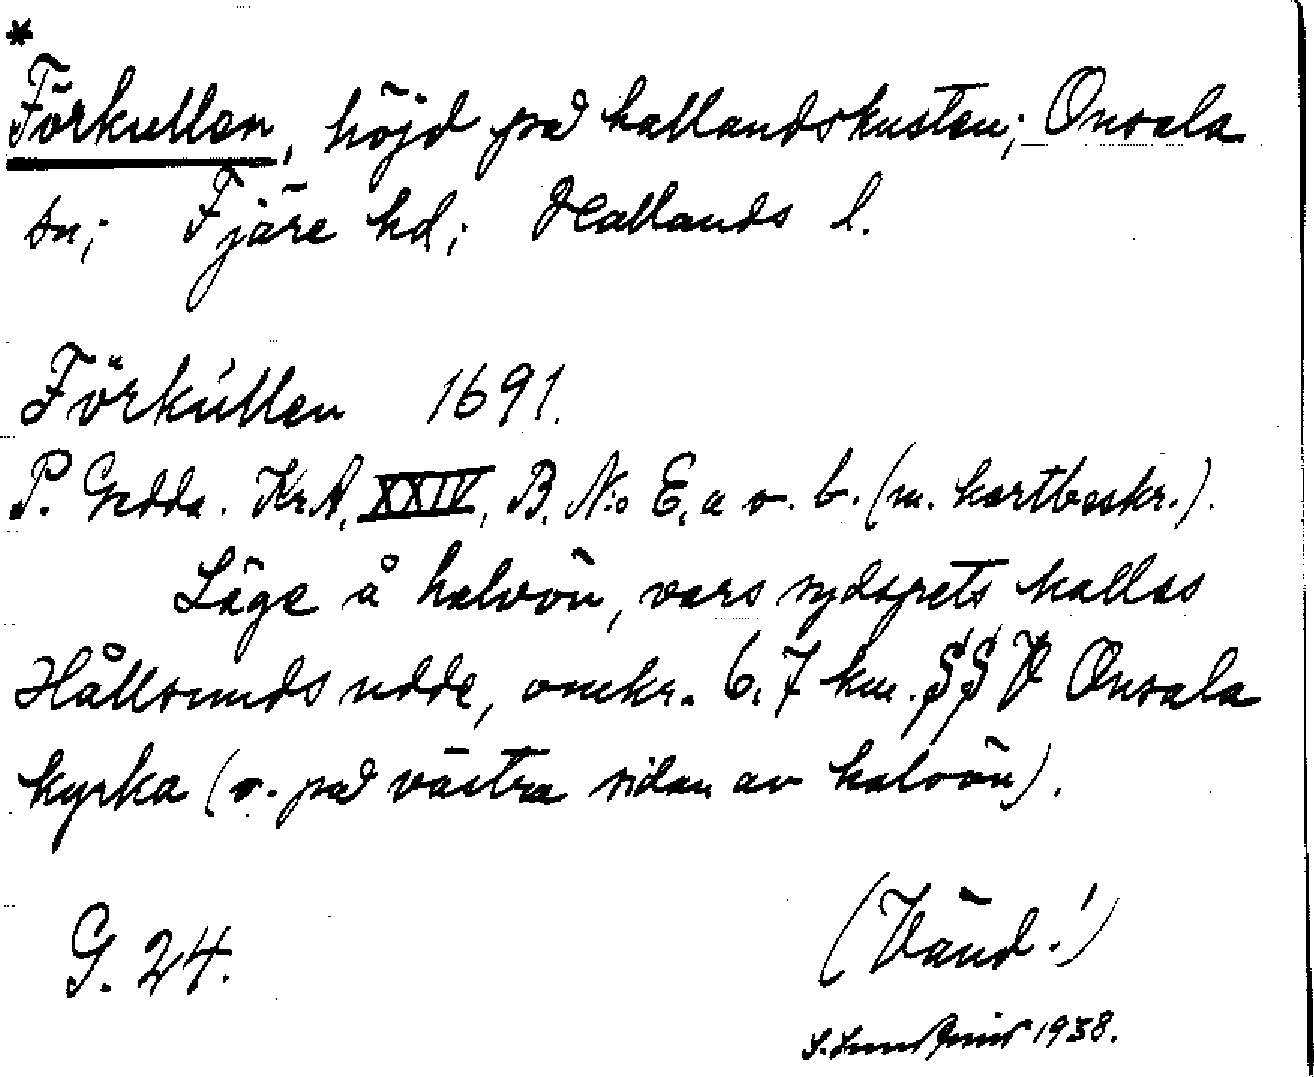 *
Förkullen, höjd på hallandskusten; Onsala
sn; Fjäre hd; Hallands l.
Förkúllen 1691.
P. Gedda. KrA, XXIV, B. N:o E, a o. b. (m. kartbeskr.).
Läge å halvön, vars sydspets kallas
Hållsunds udde, omkr. 6,7 km. SSV Onsala
kyrka (o. på västra sidan av halvön).
G. 24.
(Vänd!)
1938.